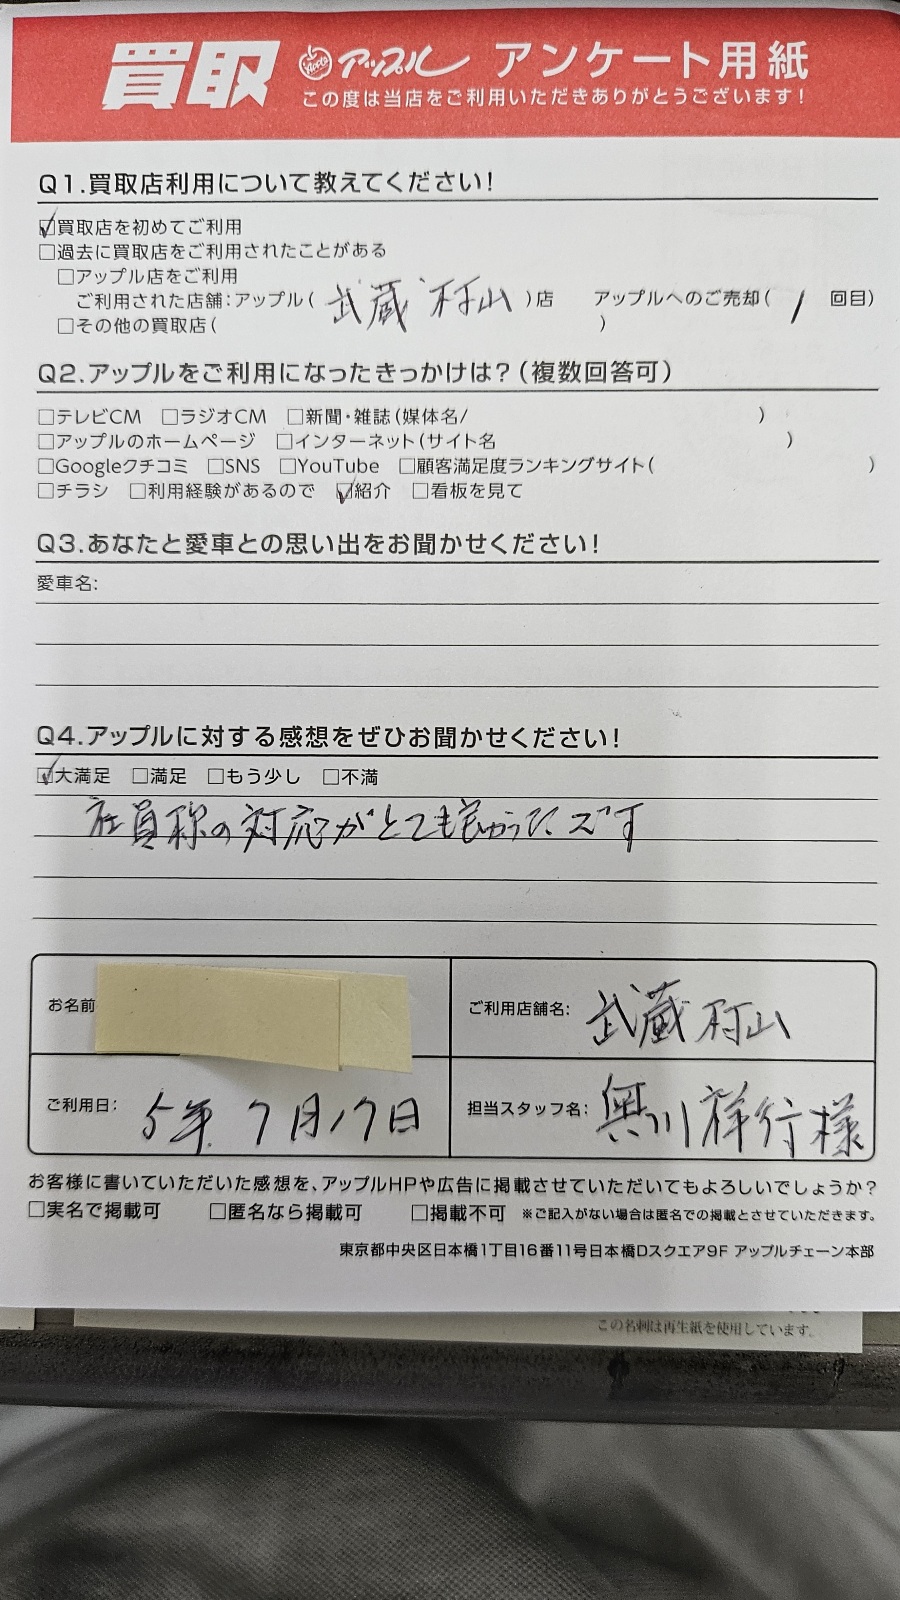 買取 アップル アンケート用紙
この度は当店をご利用いただきありがとうございます!
Q1.買取店利用について教えてください!
☑買取店を初めてご利用
□過去に買取店をご利用されたことがある
□アップル店をご利用
ご利用された店舗:アップル( 武蔵村山 )店 アップルへのご売却( 1 回目)
□その他の買取店( )
Q2.アップルをご利用になったきっかけは?(複数回答可)
□テレビCM □ラジオCM □新聞・雑誌(媒体名/ )
□アップルのホームページ □インターネット(サイト名 )
□Googleクチコミ □SNS □YouTube □顧客満足度ランキングサイト( )
□チラシ □利用経験があるので ☑紹介 □看板を見て
Q3.あなたと愛車との思い出をお聞かせください!
愛車名:
Q4.アップルに対する感想をぜひお聞かせください!
☑大満足 □満足 □もう少し □不満
社員様の対応がとても良かったです
お名前
ご利用店舗名: 武蔵村山
ご利用日: 5年 7月17日
担当スタッフ名: 奥川祥行様
お客様に書いていただいた感想を、アップルHPや広告に掲載させていただいてもよろしいでしょうか?
□実名で掲載可 □匿名なら掲載可 □掲載不可 ※ご記入がない場合は匿名での掲載とさせていただきます。
東京都中央区日本橋1丁目16番11号日本橋Dスクエア9F アップルチェーン本部
この名刺は再生紙を使用しています。